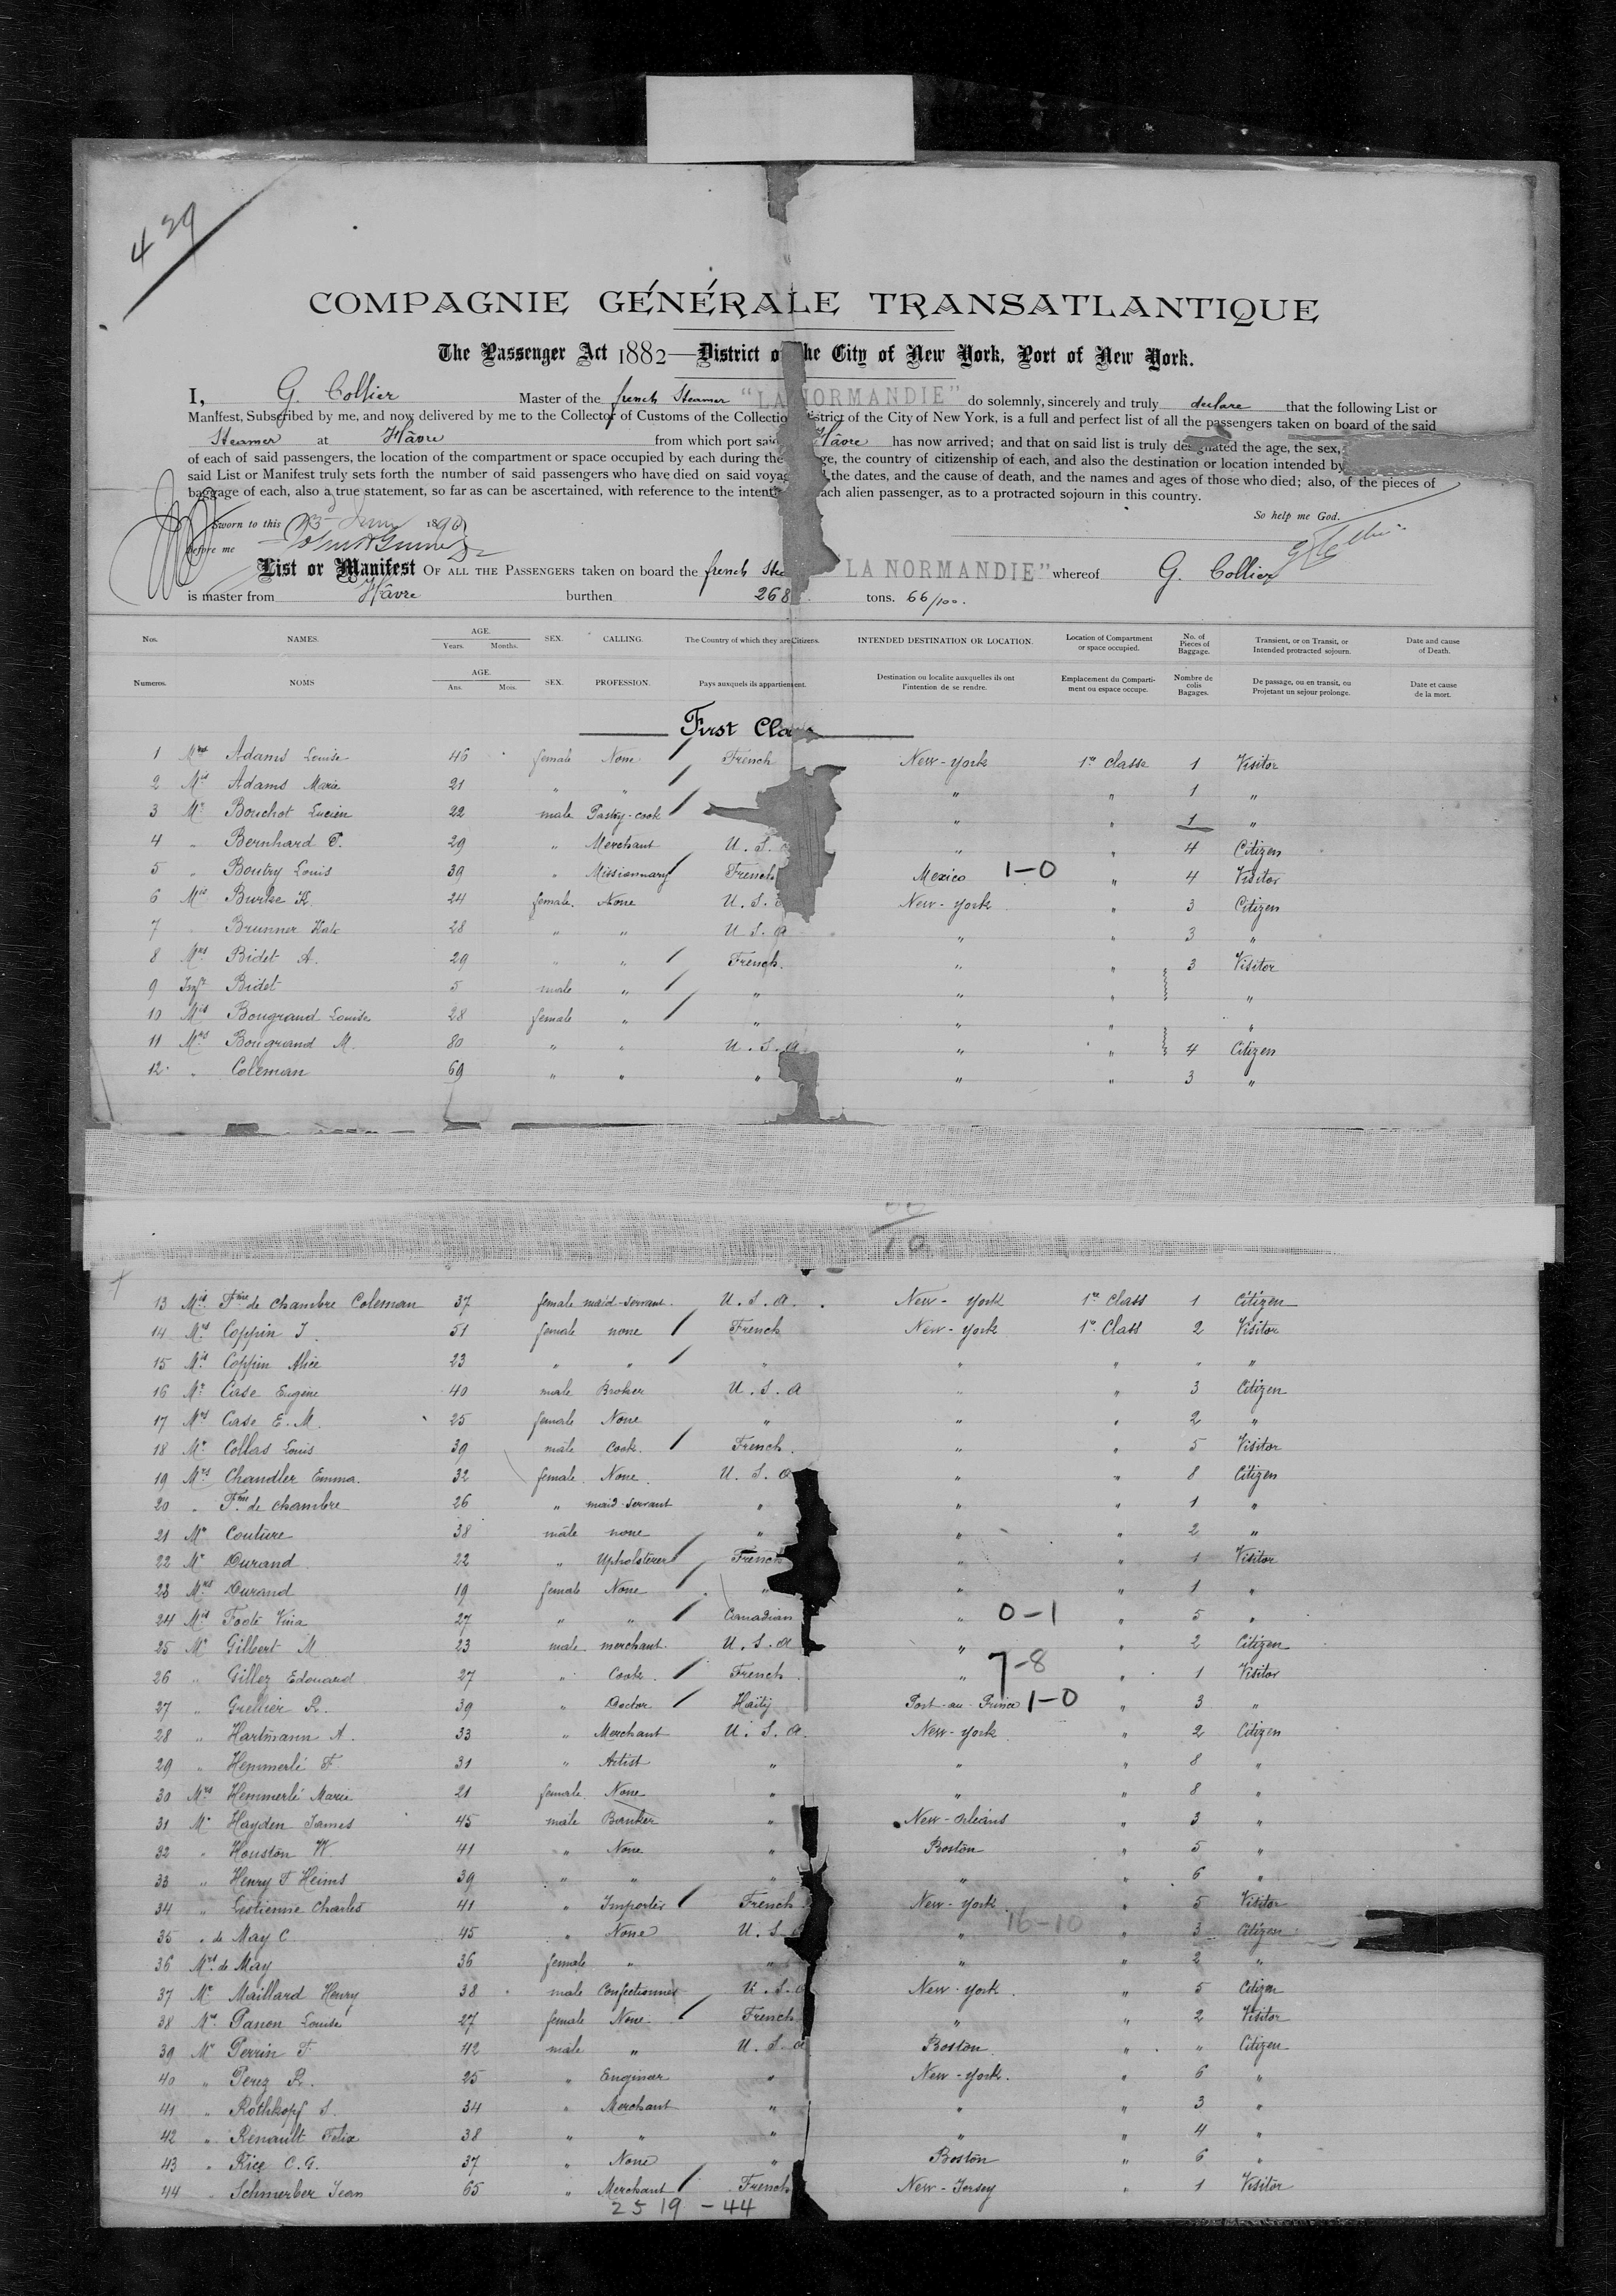 4 29
COMPAGNIE GÉNÉRALE TRANSATLANTIQUE
The Passenger Act 1882—District o the City of New York, Port of New York.
I, G. Collier Master of the french Steamer "LA NORMANDIE" do solemnly, sincerely and truly declare that the following List or
Manifest, Subscribed by me, and now delivered by me to the Collector of Customs of the Collection District of the City of New York, is a full and perfect list of all the passengers taken on board of the said
Steamer at Hâvre from which port said Hâvre has now arrived; and that on said list is truly designated the age, the sex,
of each of said passengers, the location of the compartment or space occupied by each during the ge, the country of citizenship of each, and also the destination or location intended by
said List or Manifest truly sets forth the number of said passengers who have died on said voyag the dates, and the cause of death, and the names and ages of those who died; also, of the pieces of
baggage of each, also a true statement, so far as can be ascertained, with reference to the intenti ach alien passenger, as to a protracted sojourn in this country.
So help me God.
Sworn to this 23 June 1890
before me
List or Manifest OF ALL THE PASSENGERS taken on board the french Ste LA NORMANDIE" whereof G. Collier
is master from Hâvre burthen 268 tons. 66/100.
Nos. NAMES. AGE. Years. Months. SEX. CALLING. The Country of which they are Citizens. INTENDED DESTINATION OR LOCATION. Location of Compartment or space occupied. No. of Pieces of Baggage. Transient, or on Transit, or Intended protracted sojourn. Date and cause of Death.
Numeros. NOMS AGE. Ans. Mois. SEX. PROFESSION. Pays auxquels ils appartiennent. Destination ou localite auxquelles ils ont l'intention de se rendre. Emplacement du Compartiment ou espace occupe. Nombre de colis Bagages. De passage, ou en transit, ou Projetant un sejour prolonge. Date et cause de la mort.
First Cla
1 Mrs Adams Louise 46 female None French New-York 1re Classe 1 Visitor
2 Mis Adams Marie 21 " " " " 1 "
3 Mr Bouchot Lucien 22 male Pastry-cook " " 1 "
4 " Bernhard E. 29 " Merchant U.S. " " 4 Citizen
5 " Boutry Louis 39 " Missionnary French Mexico 1-0 " 4 Visitor
6 Mis Burke K. 24 female. None U.S. New-York " 3 Citizen
7 " Brunner Kate 28 " " U S. a " " 3 "
8 Mrs Bidet A. 29 " " French. " " 3 Visitor
9 Inft Bidet 5 male " " " " "
10 Mis Bougrand Louise 28 female " " " " "
11 Mrs Bougrand M. 80 " " U.S.a " " 4 Citizen
12 " Coleman 69 " " " " " 3 "
13 Mis Fme de chambre Coleman 37 female maid-servant. U.S.a. New-York 1re Class 1 Citizen
14 Mrs Coppin J. 51 female none French New-York 1re Class 2 Visitor
15 Mis Coppin Alice 23 " " " " " " "
16 Mr Case Eugène 40 male Broker U.S.a " " 3 Citizen
17 Mrs Case E.M. 25 female None " " " 2 "
18 Mr Collas Louis 39 male Cook. French. " " 5 Visitor
19 Mrs Chandler Emma. 32 female None. U.S.a " " 8 Citizen
20 " Fme de chambre 26 " maid-servant " " " 1 "
21 Mr Couture 38 male none " " " 2 "
22 Mr Durand 22 " Upholsterer French " " 1 Visitor
23 Mrs Durand 19 female None " " " 1 "
24 Mrs Foote Vina 27 " " Canadian " 0-1 " 5 "
25 Mr Gilbert M. 23 male merchant. U.S.a " " 2 Citizen
26 " Gillez Edouard 27 " Cook. French " 7-8 " 1 Visitor
27 " Grellier R. 39 " Doctor Haïty Port-au-Prince 1-0 " 3 "
28 " Hartmann A. 33 " Merchant U.S.a. New-York " 2 Citizen
29 " Hemmerlé F. 31 " Artist " " " 8 "
30 Mrs Hemmerlé Marie 21 female None " " " 8 "
31 Mr Hayden James 45 male Banker " New-Orléans " 3 "
32 " Houston W. 41 " None " Boston " 5 "
33 " Henry F Heims 39 " " " " " 6 "
34 " Lestienne Charles 41 " Importer French New-York " 5 Visitor
35 " de May C. 45 " None U.S. " 16-10 " 3 Citizen
36 Mrs de May 36 female " " " " 2 "
37 Mr Maillard Henry 38 male Confectionner U.S. New-York. " 5 Citizen
38 Mrs Panon Louise 27 female None French " " 2 Visitor
39 Mr Perrin F. 42 male " U.S.a Boston. " " Citizen
40 " Perez R. 25 " Engineer " New-York. " 6 "
41 " Rothkopf S. 34 " Merchant " " " 3 "
42 " Renault Felix 38 " " " " " 4 "
43 " Rice C.G. 37 " None " Boston " 6 "
44 " Schmerber Jean 65 " Merchant French New-Jersey " 1 Visitor
25 19 - 44